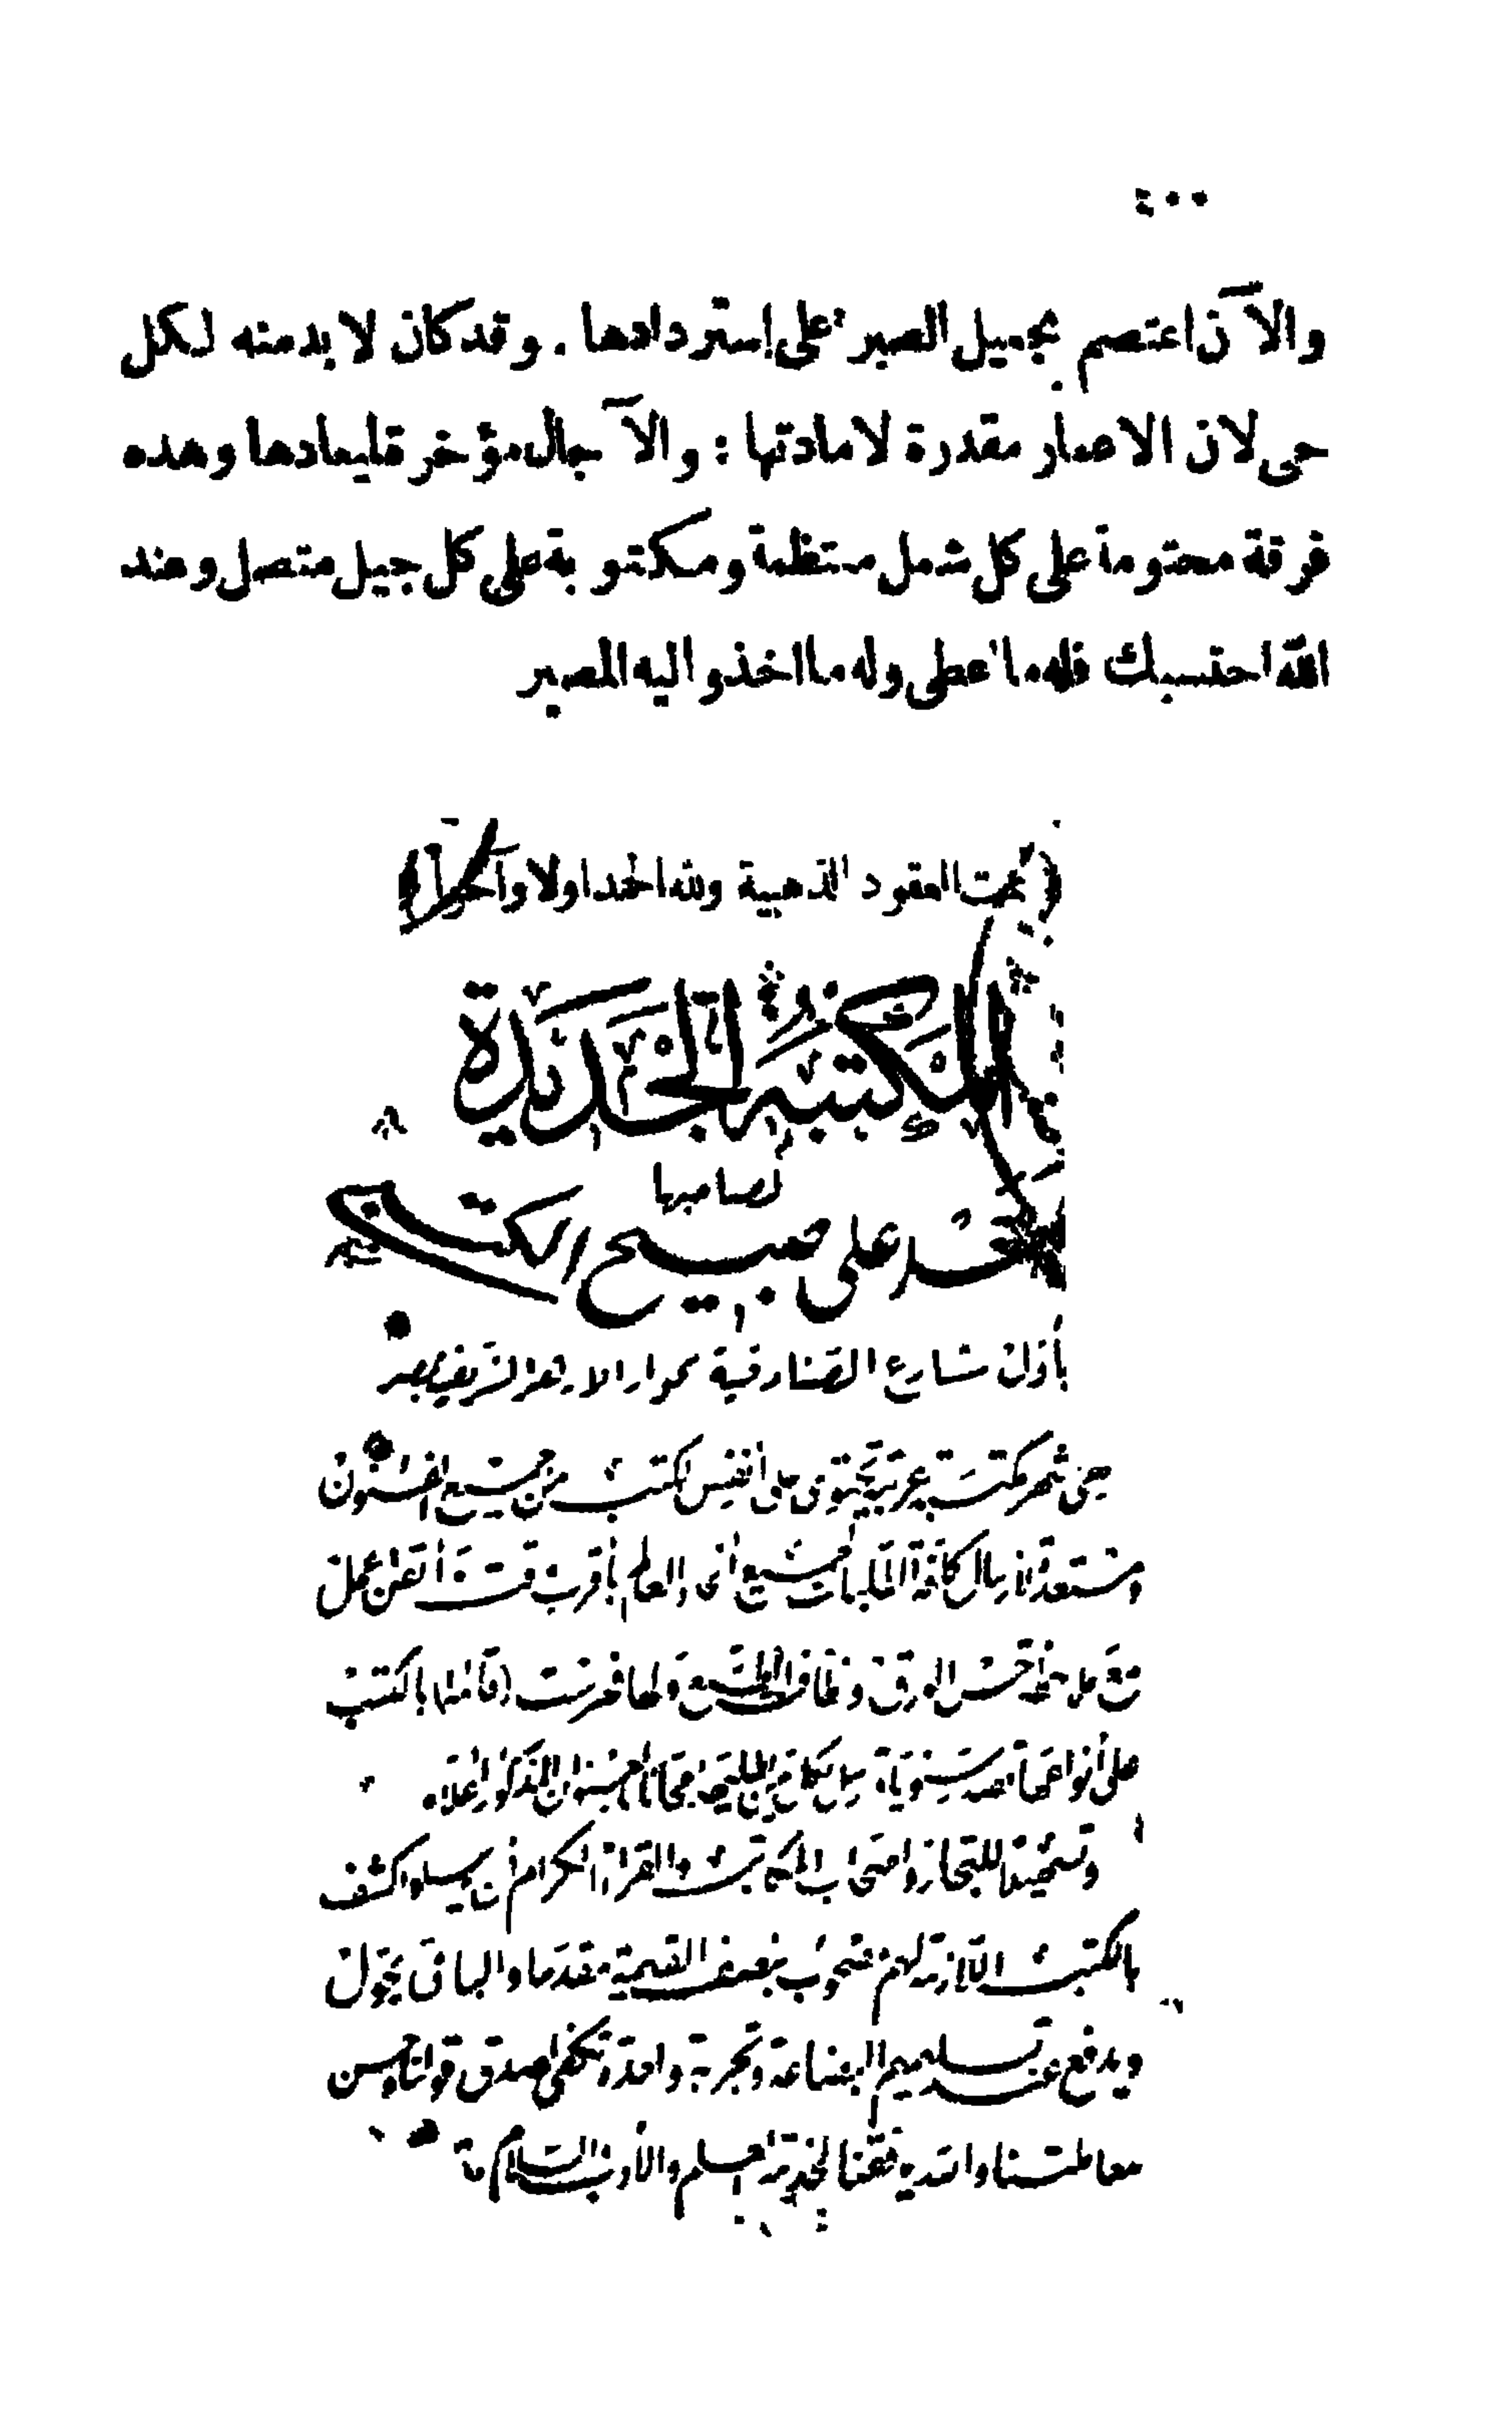 ٤٠٠
والآن اعتصم بجميل الصبر على إستردادها. وقد كان لا بد منه لكل
حى لان الاعمار مقدرة لامادتها: والآجال مؤخرة لميعادها وهذه
فرقة محتومة على كل شمل منتظمة ومكتوبة على كل جيل متصل وعند
الله احتسبك فله ما اعطى وله ما اخذ واليه المصير
(تمت العقود الذهبية ولله الحمد اولا وآخرا)
المكتبة الجديدة
لصاحبها
محمد على صبيح الكتبى
بأول شارع الصنادقية بجوار الازهر الشريف بمصر
هى أشهر مكتبة عربية تحتوى على أنفس الكتب من جميع الفنون
ومستعدة لارسال كافة الطلبات لجميع أنحاء العالم بأقرب وقت وأتقن عمل
مع ملاحظة حسن الورق ونظافة الطبع ولها فهرست (قائمة) بالكتب
على أنواعها تصدر سنويا ترسل لكل من يطلبها مجانا بالعنوان المذكور أعلاه
وتسهيلا للتجار وأصحاب المكاتب والقراء الكرام أن يرسلوا كشف
بالكتب اللازمة لهم مصحوب بنصف القيمة مقدما والباقى يحول
ويدفع عند تسليم البضاعة وتجربة واحدة تكفى لصدق قولنا وحسن
معاملتنا والله يوفقنا لخدمة العلم والأدب والسلام